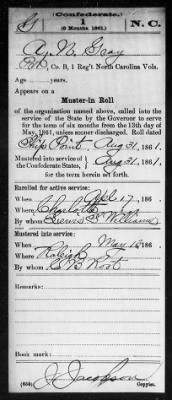 (Confederate.)
G 1 N. C.
(6 Months 1861.)
A. N. Gray
Pvt, Co. B, 1 Reg't North Carolina Vols.
Age years.
Appears on a
Muster-in Roll
of the organization named above, called into the
service of the State by the Governor to serve
for the term of six months from the 13th day of
May, 1861, unless sooner discharged. Roll dated
Ship Point Aug 31, 1861.
Mustered into service of
the Confederate States, Aug 31, 1861.
for the term herein set forth.
Enrolled for active service:
When Apl 17, 186 .
Where Charlotte
By whom Lewis S. Williams
Mustered into service:
When May 13 186 .
Where Raleigh
By whom
Remarks:
Book mark:
J. Jacobson
(650) Copyist.